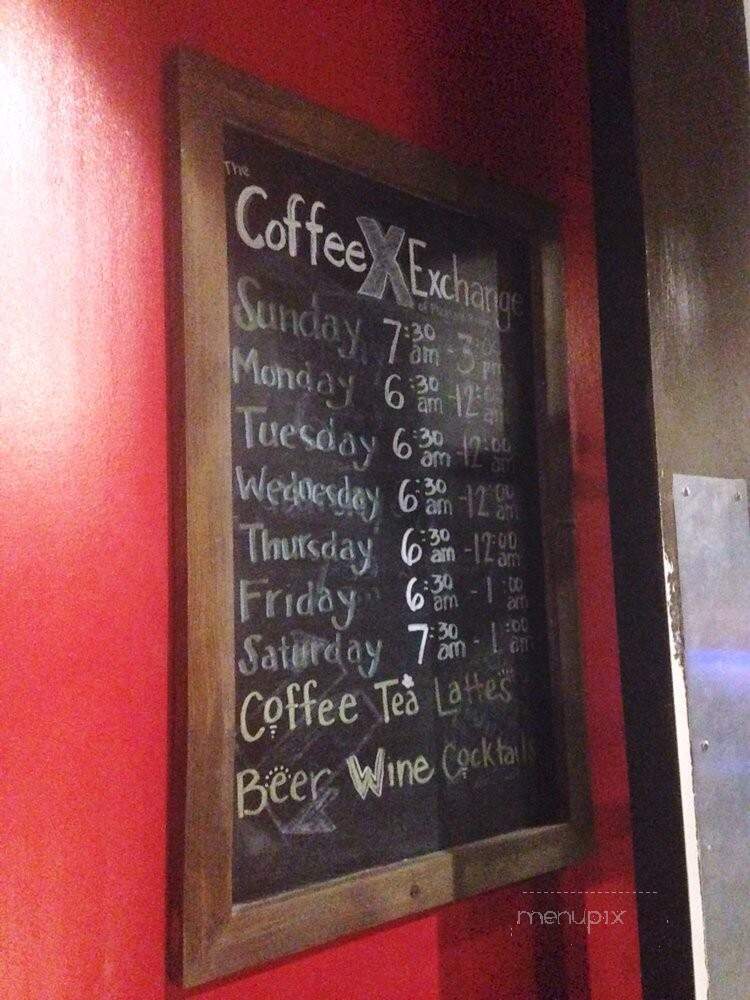 The
Coffee X Exchange
of
Sunday 7:30 am - 3:00 pm
Monday 6:30 am - 12:00 am
Tuesday 6:30 am - 12:00 am
Wednesday 6:30 am - 12:00 am
Thursday 6:30 am - 12:00 am
Friday 6:30 am - 1:00 am
Saturday 7:30 am - 1:00 am
Coffee Tea Lattes
Beer Wine Cocktails
menupix